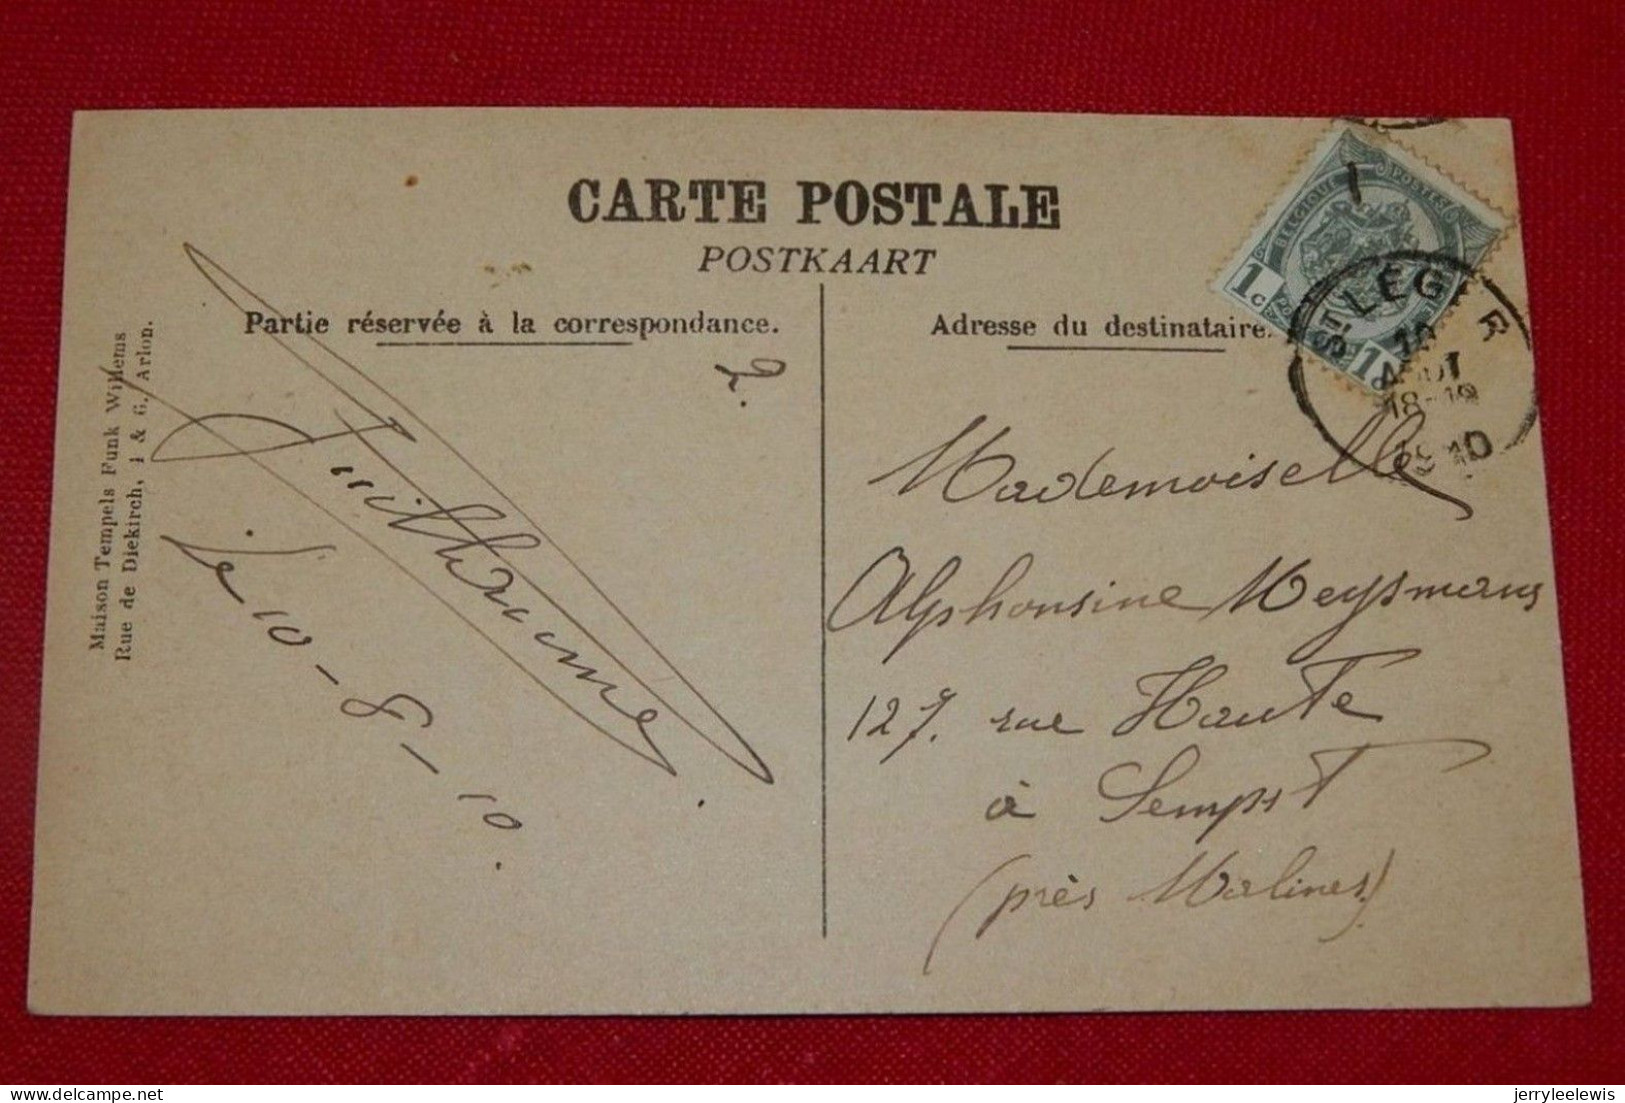 CARTE POSTALE
POSTKAART
Partie réservée à la correspondance.
Adresse du destinataire.
Maison Tempels Funk Willems
Rue de Diekirch, 4 & 6, Arlon.
2.
le 10-8-10.
BELGIQUE
POSTES
1c
1
ST LEGER
10
AOUT
18-19
1910
Mademoiselle
Alphonsine Meysmans
127, rue Haute
à Sempst
(près Malines)
delcampe.net
jerryleelewis